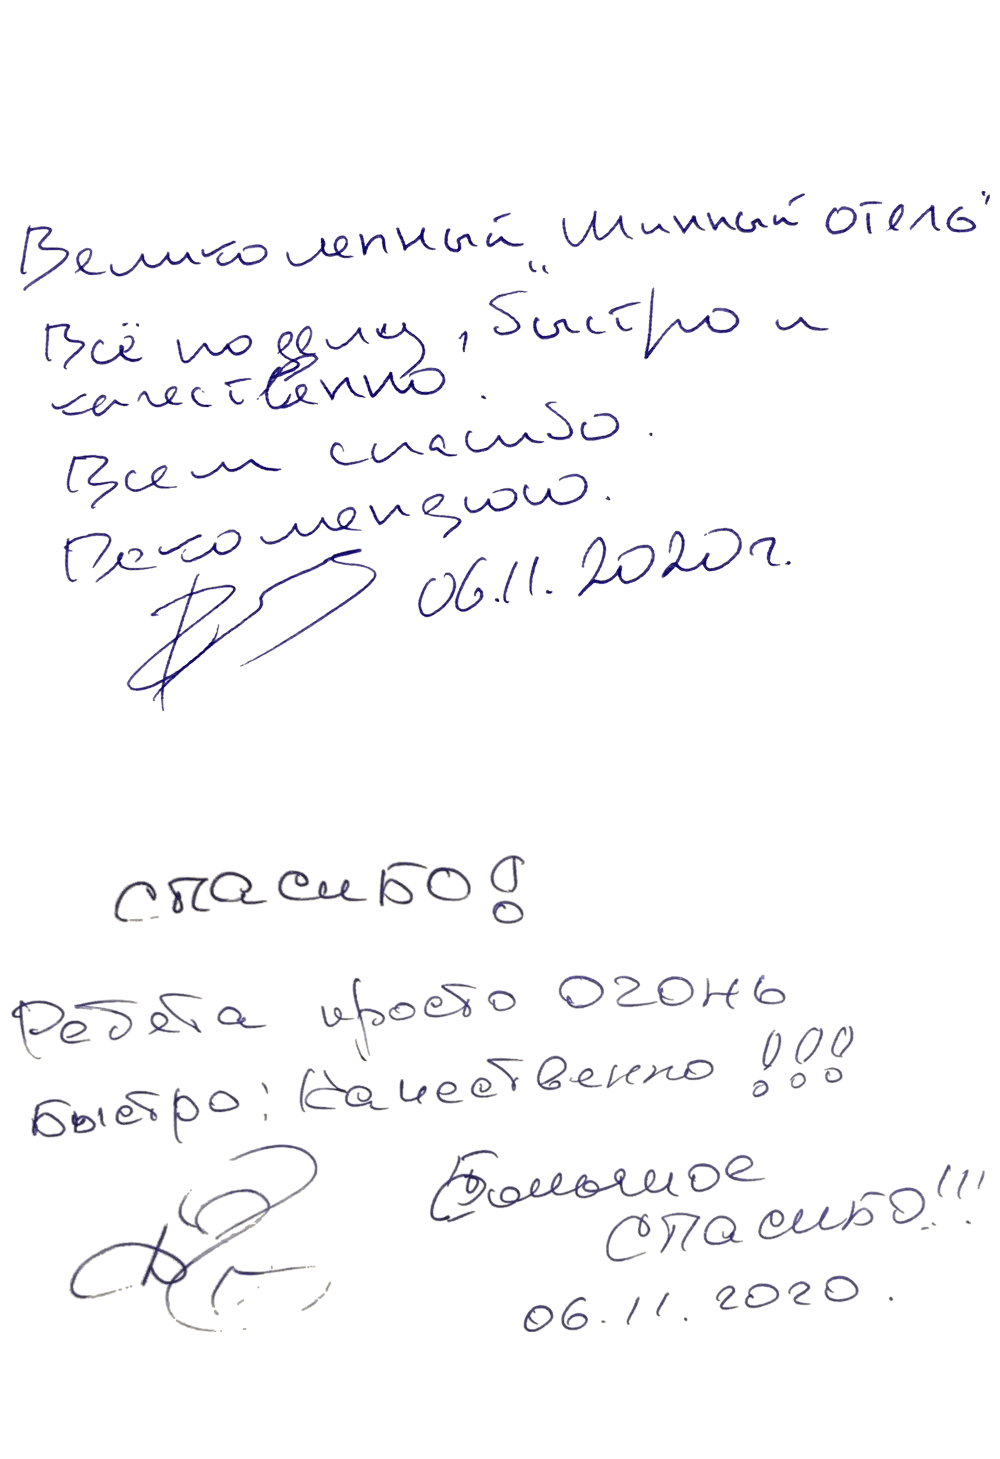 Великолепный „Шинный отель"
Всё по делу, быстро и
качественно.
Всем спасибо.
Рекомендую.
06.11.2020г.
Спасибо!
Ребета просто огонь
Быстро; Качественно!!!
Большое
спасибо!!!
06.11.2020.